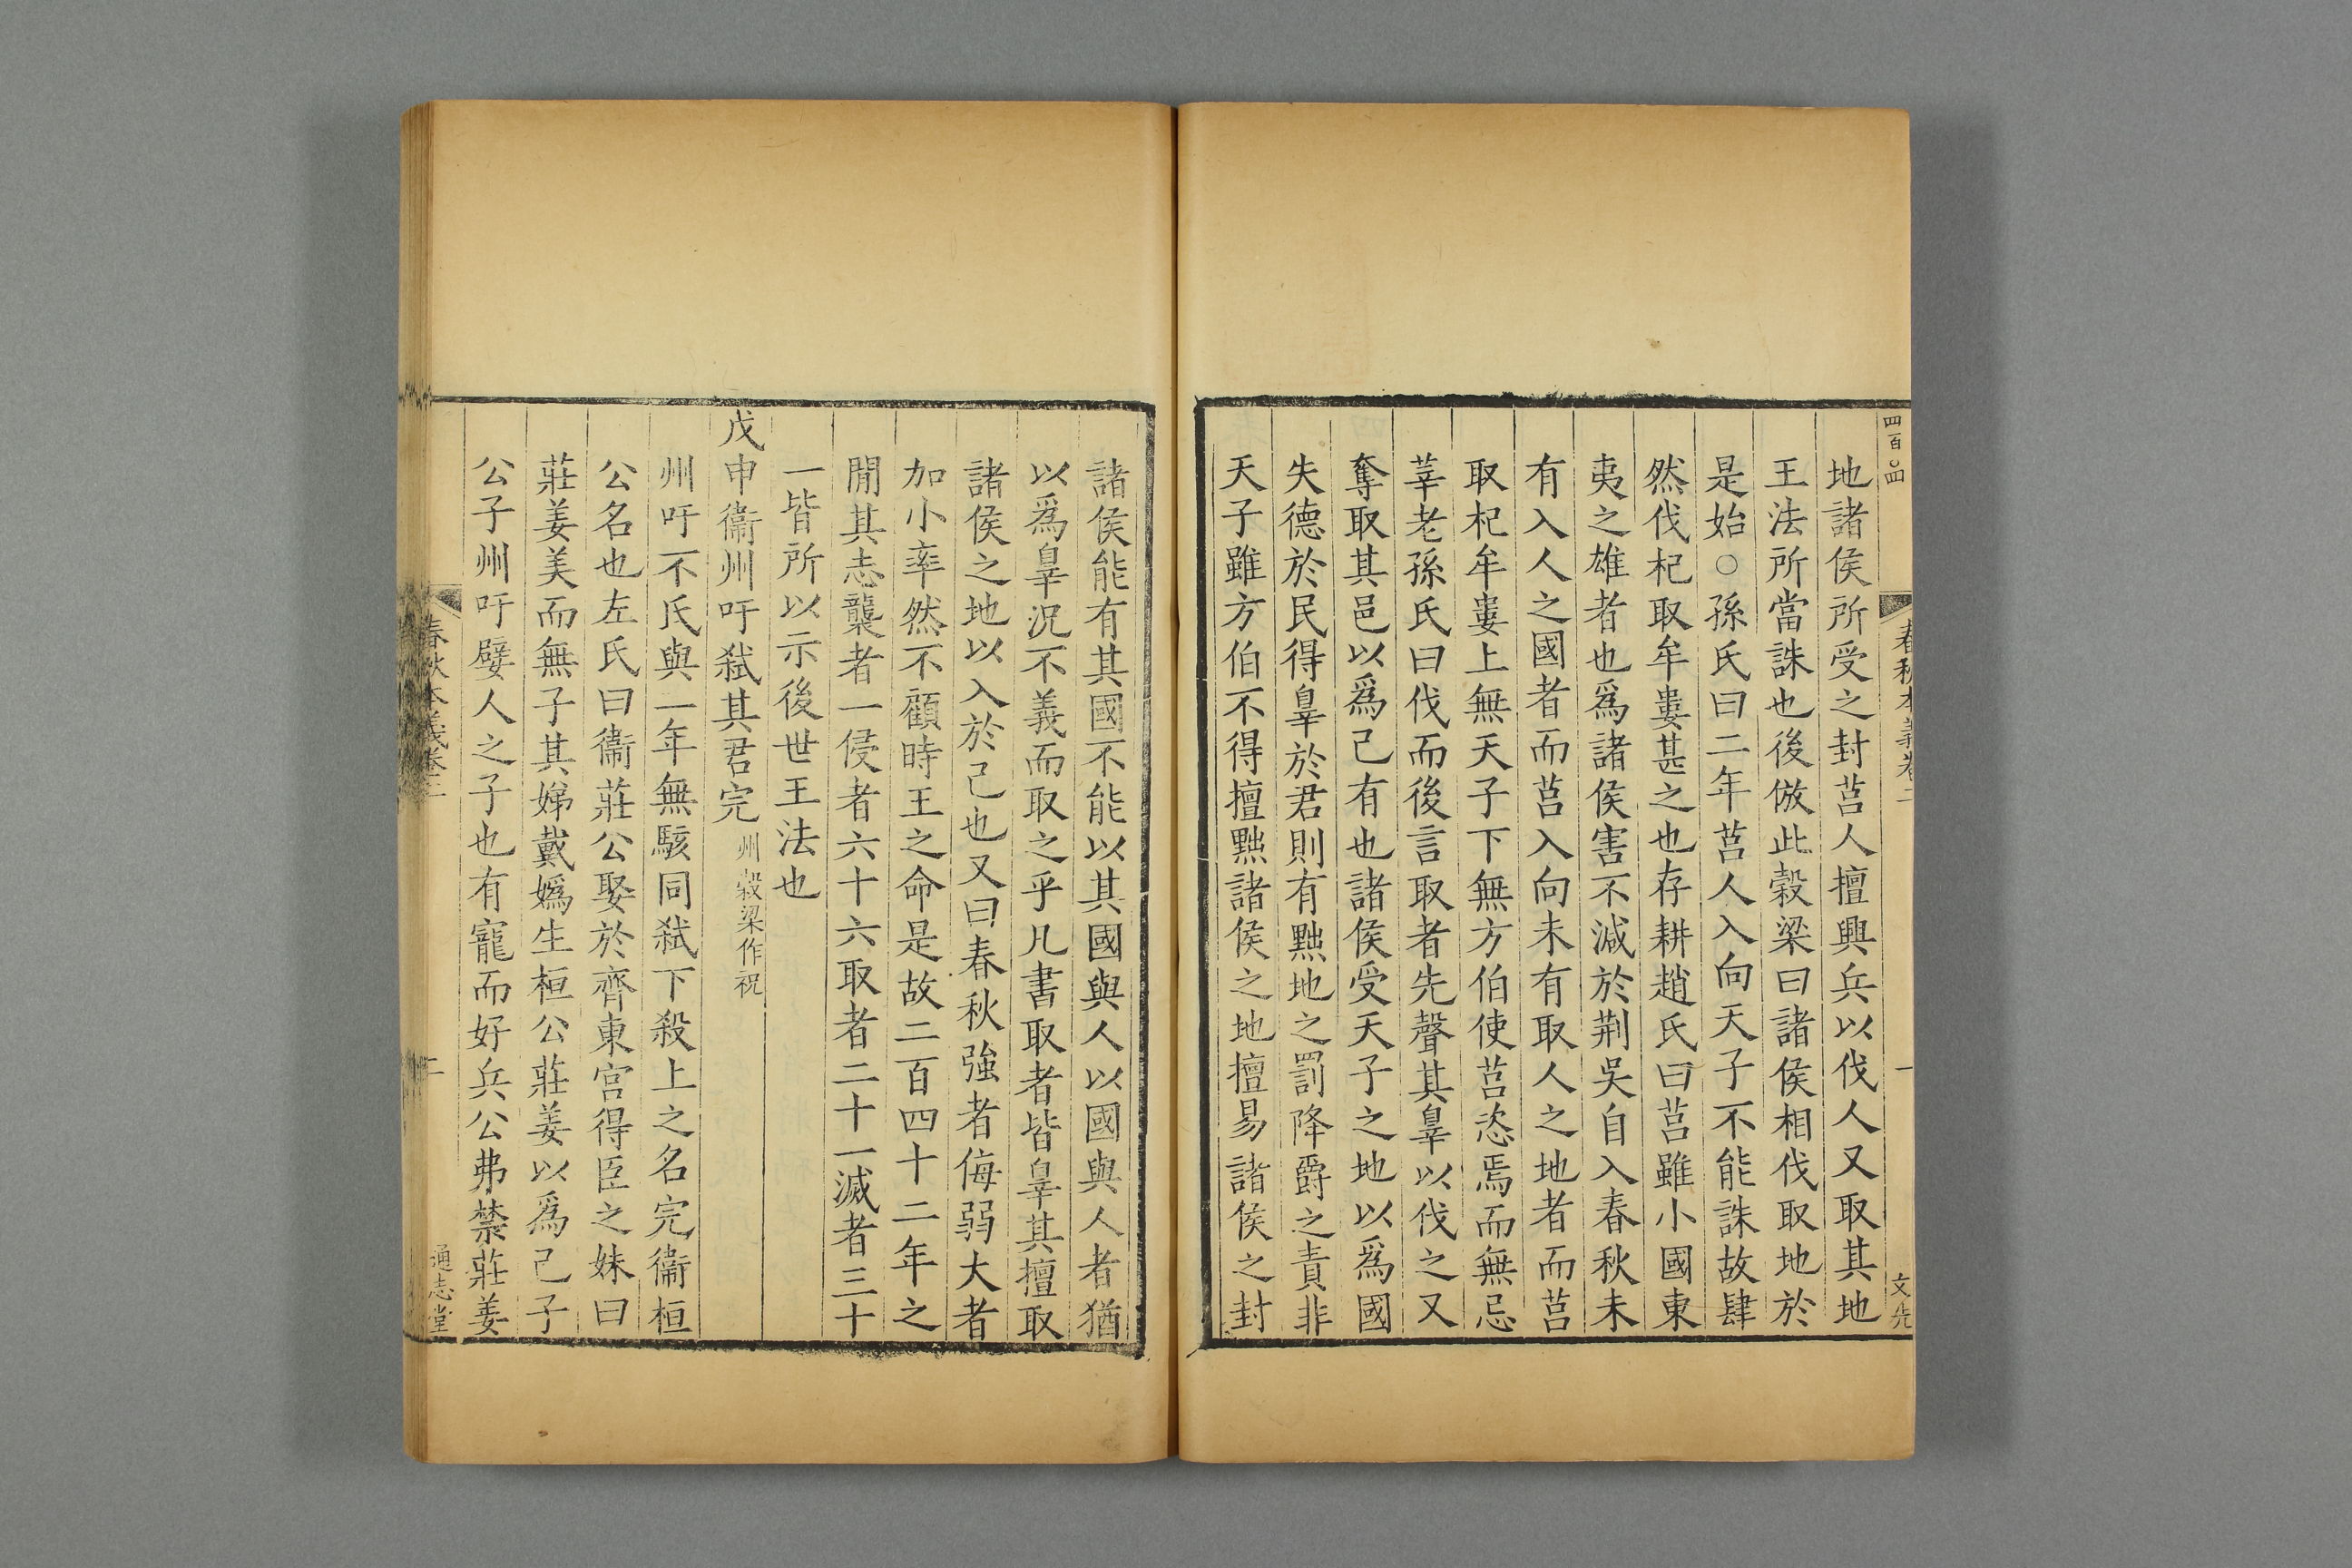 四百〇四
春秋本義卷二
一
文先
地諸侯所受之封莒人擅興兵以伐人又取其地
王法所當誅也後倣此穀梁曰諸侯相伐取地於
是始○孫氏曰二年莒人入向天子不能誅故肆
然伐杞取牟婁甚之也存耕趙氏曰莒雖小國東
夷之雄者也爲諸侯害不減於荆吳自入春秋未
有入人之國者而莒入向未有取人之地者而莒
取杞牟婁上無天子下無方伯使莒恣焉而無忌
莘老孫氏曰伐而後言取者先聲其辠以伐之又
奪取其邑以爲己有也諸侯受天子之地以爲國
失德於民得辠於君則有黜地之罰降爵之責非
天子雖方伯不得擅黜諸侯之地擅易諸侯之封
諸侯能有其國不能以其國與人以國與人者猶
以爲辠況不義而取之乎凡書取者皆辠其擅取
諸侯之地以入於己也又曰春秋強者侮弱大者
加小率然不顧時王之命是故二百四十二年之
閒其志襲者一侵者六十六取者二十一滅者三十
一皆所以示後世王法也
戊申衞州吁弑其君完州穀梁作祝
州吁不氏與二年無駭同弑下殺上之名完衞桓
公名也左氏曰衞莊公娶於齊東宫得臣之妹曰
莊姜美而無子其娣戴嬀生桓公莊姜以爲己子
公子州吁嬖人之子也有寵而好兵公弗禁莊姜
春秋本義卷二
二
通志堂